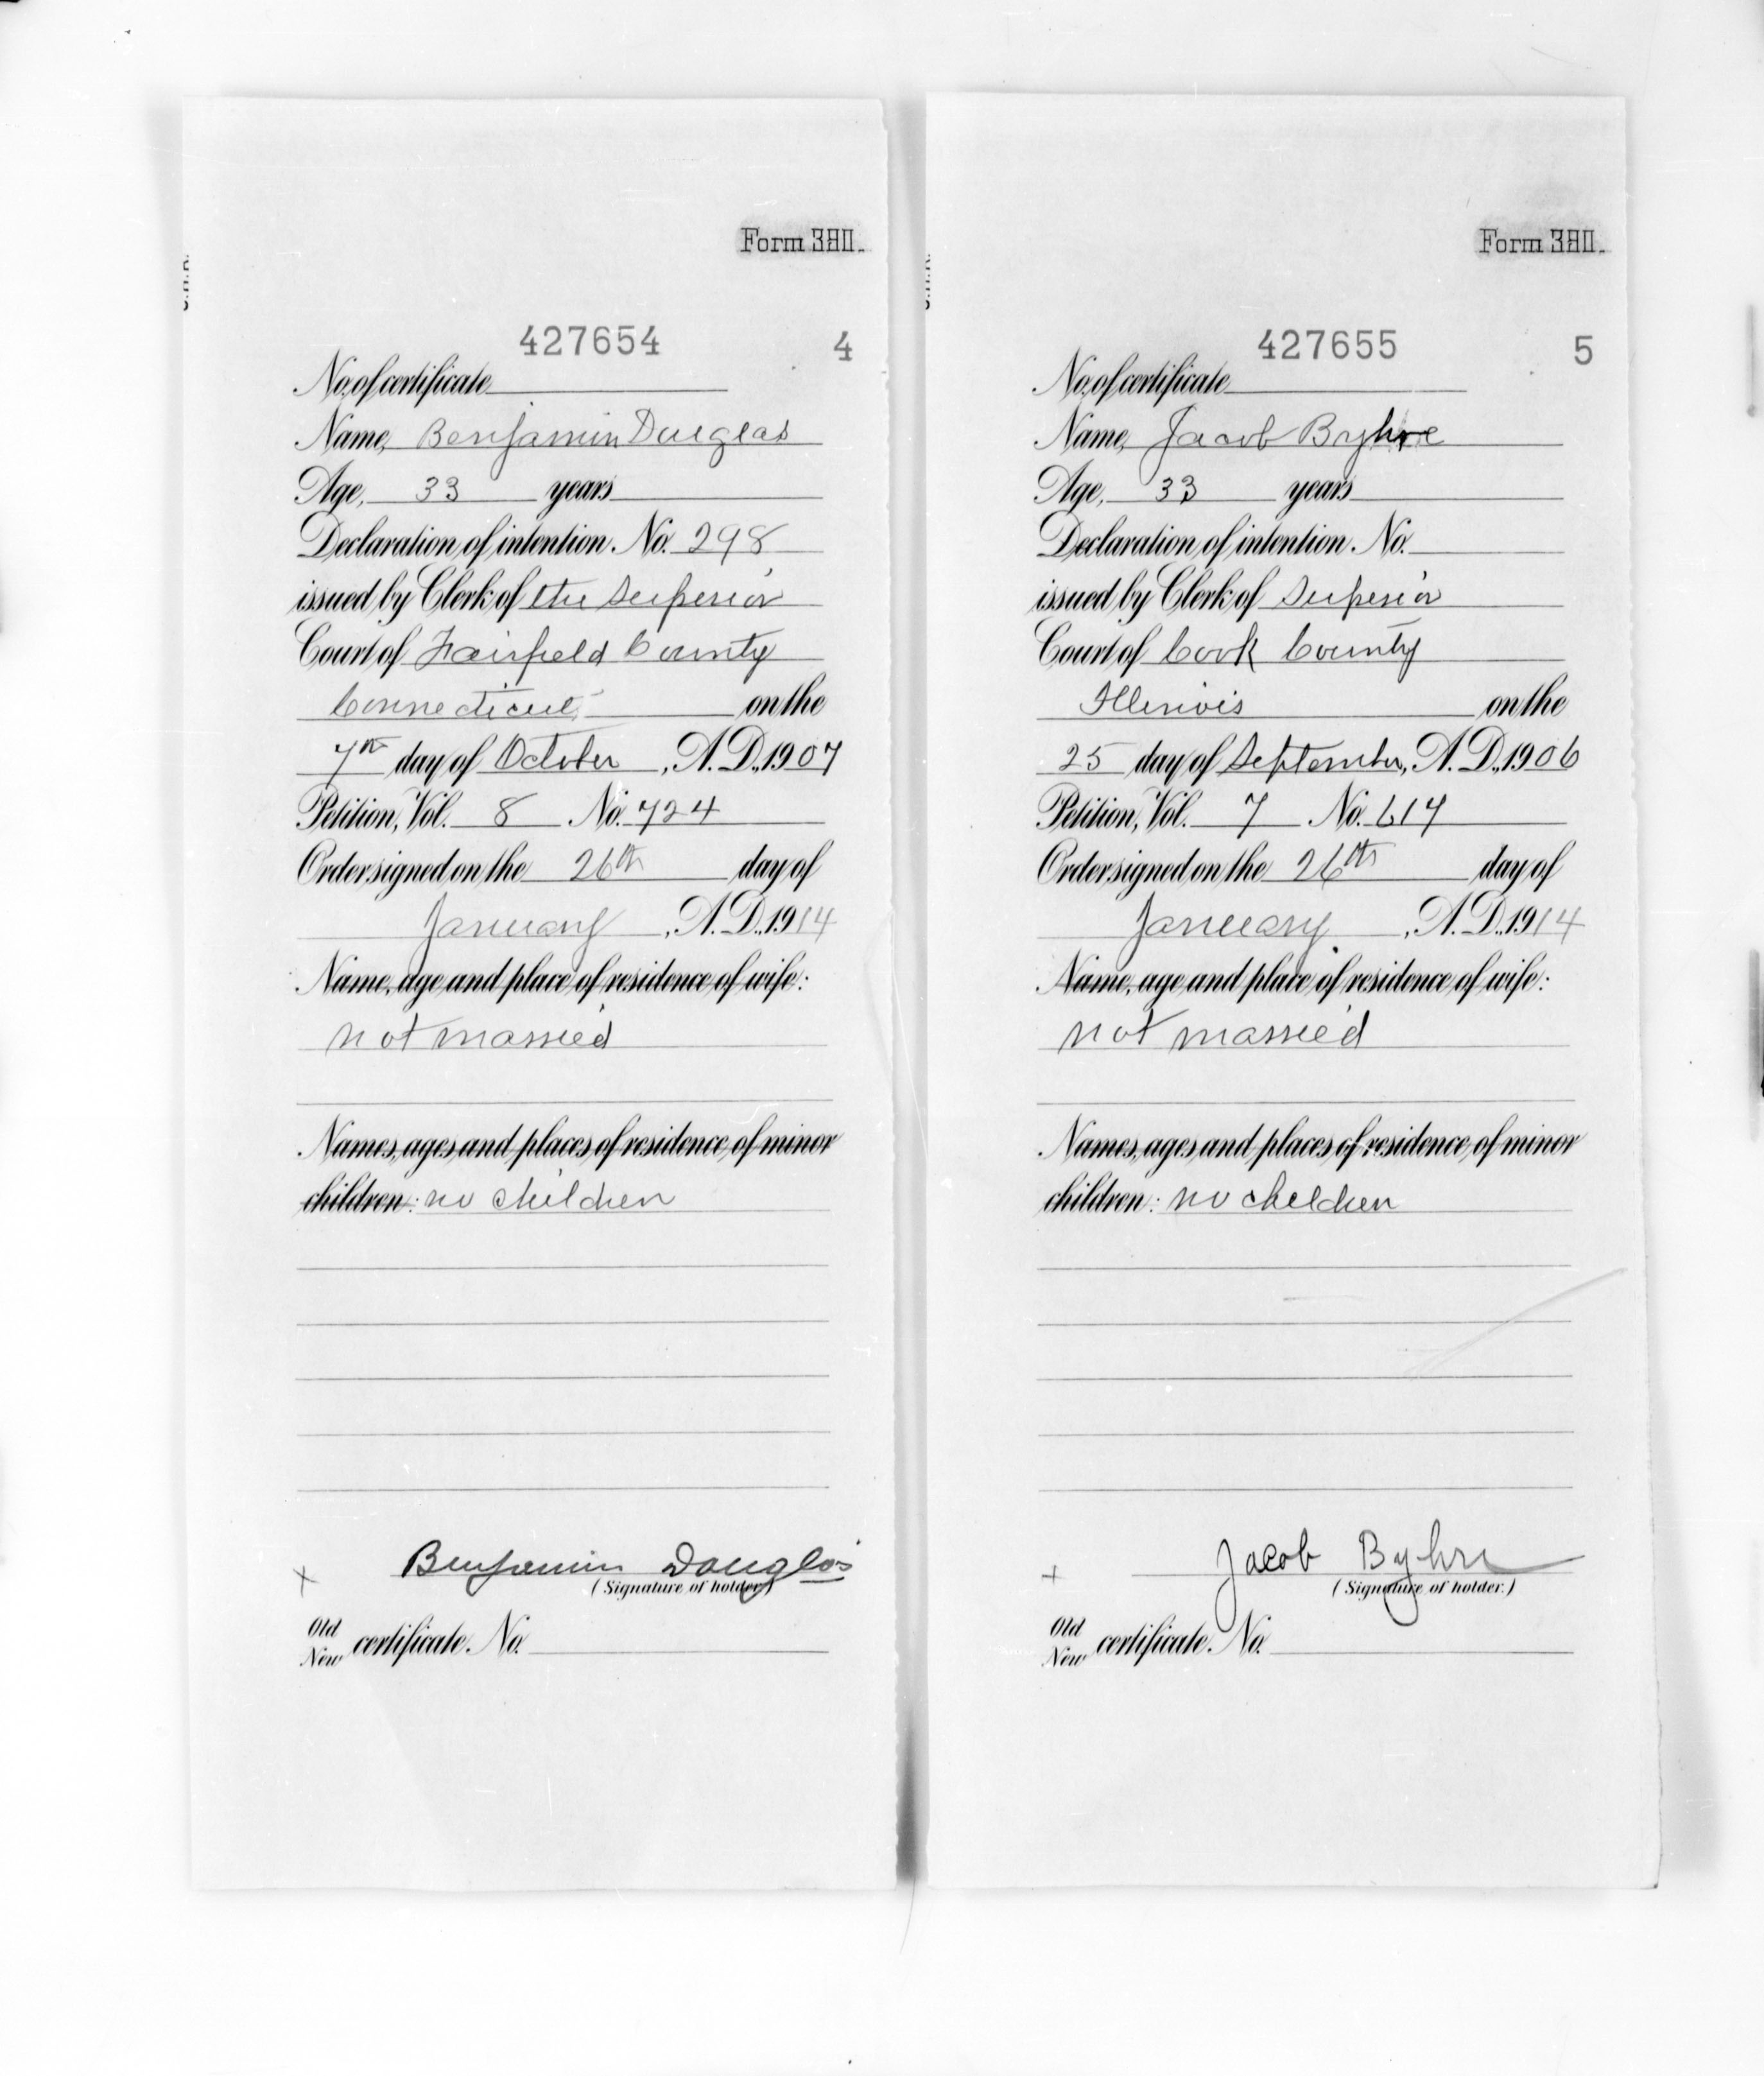 Form 3811.
427654 4
No. of certificate
Name, Benjamin Douglas
Age, 33 years
Declaration of intention. No. 298
issued by Clerk of the Superior
Court of Fairfield County
Connecticut on the
7th day of October, A. D., 1907
Petition, Vol. 8 No. 724
Order signed on the 26th day of
January, A. D., 1914
Name, age and place of residence of wife:
not married
Names, ages and places of residence of minor
children: no children
x Benjamin Douglas
(Signature of holder.)
Old
New certificate No.
Form
427655 5
No. of certificate
Name, Jacob Byhre
Age, 33 years
Declaration of intention. No.
issued by Clerk of Superior
Court of Cook County
Illinois on the
25 day of September, A. D., 1906
Petition, Vol. 7 No. 617
Order signed on the 26th day of
January, A. D., 1914
Name, age and place of residence of wife:
not married
Names, ages and places of residence of minor
children: no children
x Jacob Byhre
(Signature of holder.)
Old
New certificate No.